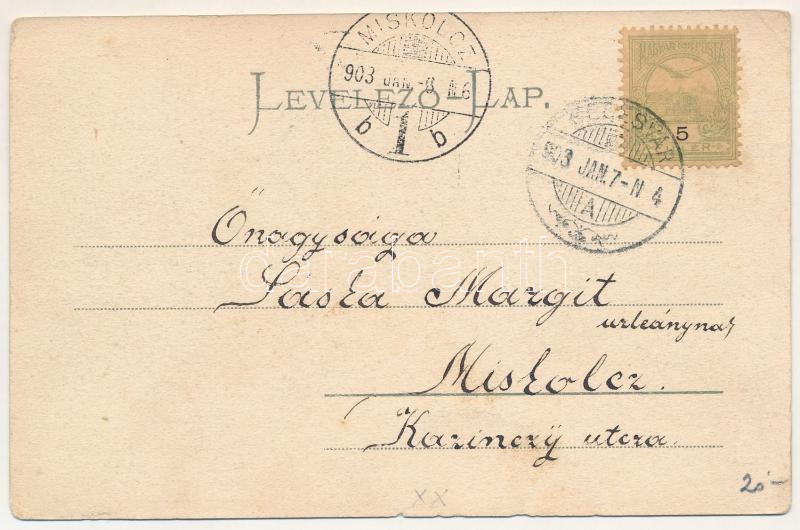 MISKOLCZ
903 JAN.-8. N.6
b 1 b
LEVELEZŐ-LAP.
MAGYAR KIR. POSTA
5
903 JAN.7-N 4
A
Őnagysága
Láska Margit
urleánynak
Miskolcz.
Kazinczy utcza.
databanth
20-
XX